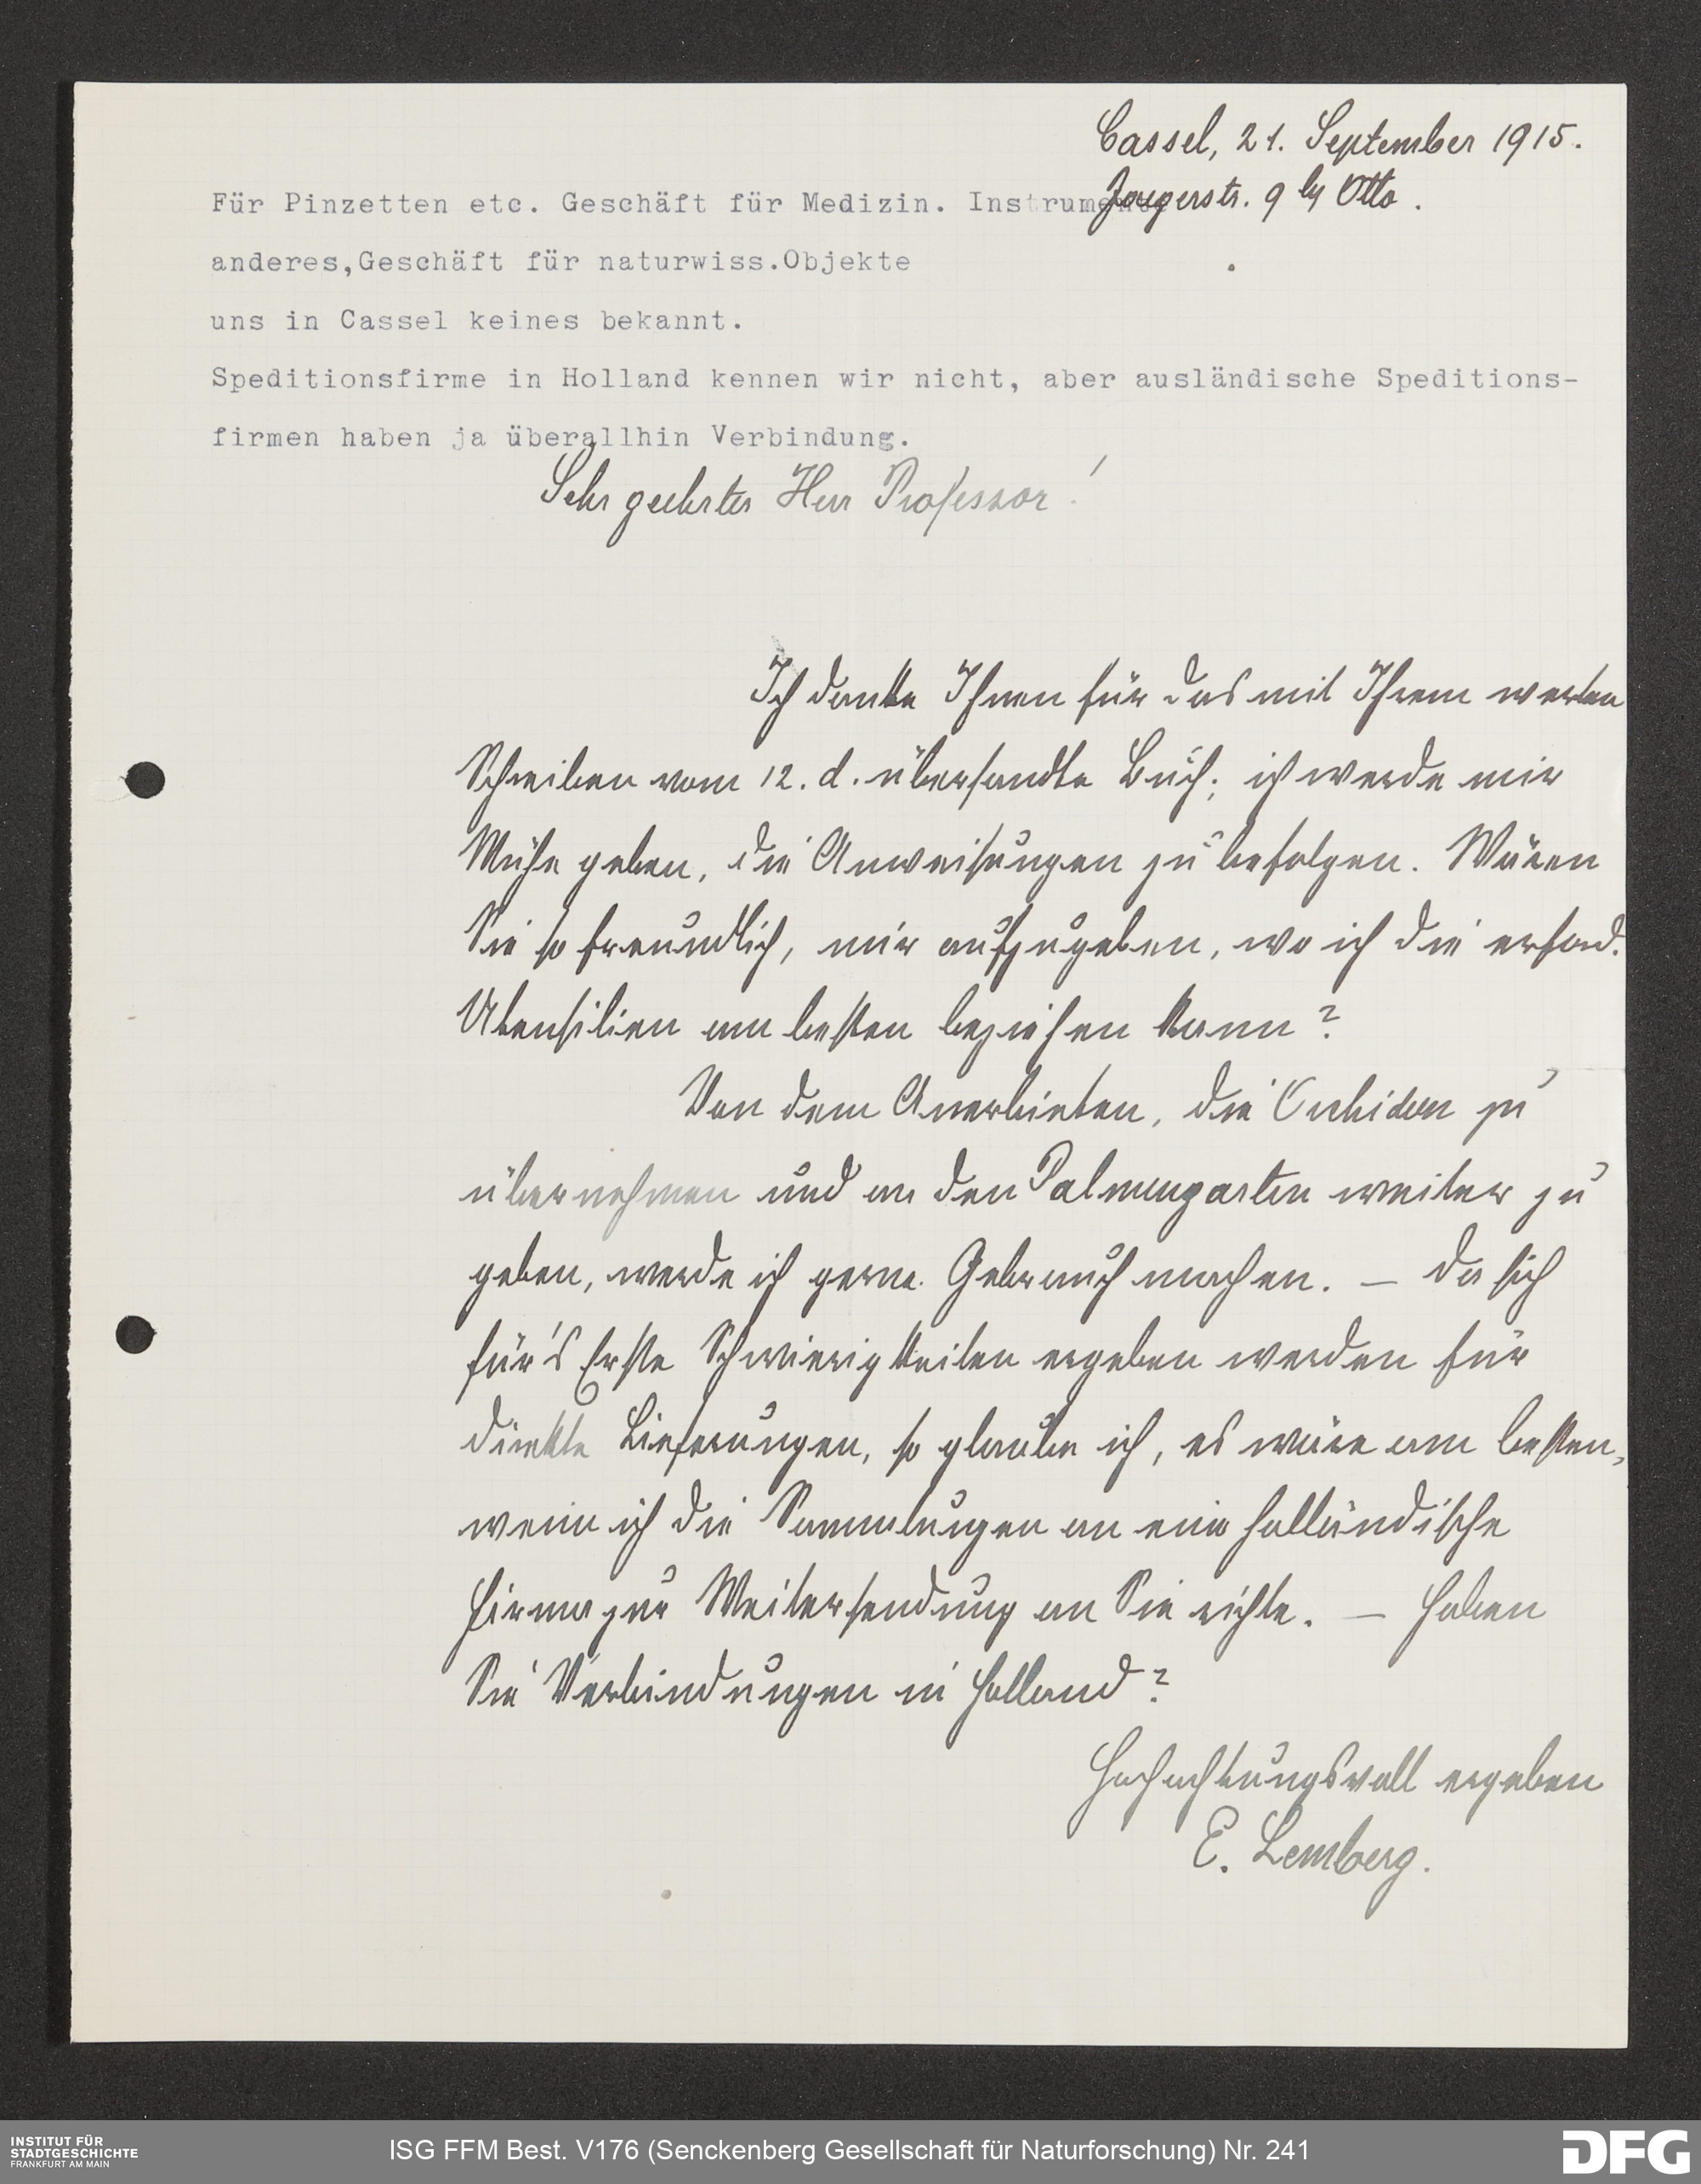 Cassel, 21. September 1915.
Jaegerstr. 9 by Otto.
Für Pinzetten etc. Geschäft für Medizin. Instrumente
anderes,Geschäft für naturwiss.Objekte
uns in Cassel keines bekannt.
Speditionsfirme in Holland kennen wir nicht, aber ausländische Speditions-
firmen haben ja überallhin Verbindung.
Sehr geehrter Herr Professor!
Ich danke Ihnen für das mit Ihrem werten
Schreiben vom 12. d. übersandte Buch; ich werde mir
Mühe geben, die Anweisungen zu befolgen. Wären
Sie so freundlich, mir aufzugeben, wo ich die erford.
Utensilien am besten beziehen kann?
Von dem Anerbieten, die Orchideen zu
übernehmen und an den Palmengarten weiter zu
geben, werde ich gerne Gebrauch machen. — Da sich
für's Erste Schwierigkeiten ergeben werden für
direkte Lieferungen, so glaube ich, es wäre am besten,
wenn ich die Sammlungen an eine holländische
Firma zur Weitersendung an Sie richte. — Haben
Sie Verbindungen in Holland?
Hochachtungsvoll ergeben
E. Lemberg.
INSTITUT FÜR
STADTGESCHICHTE
FRANKFURT AM MAIN
ISG FFM Best. V176 (Senckenberg Gesellschaft für Naturforschung) Nr. 241
DFG